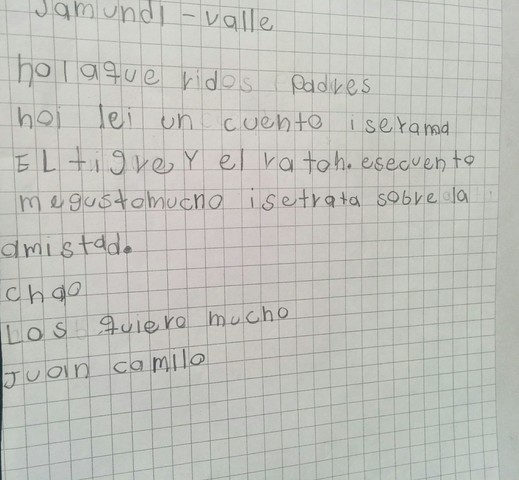 Jamundi - valle
holaque ridos padres
hoi lei un cuento iserama
EL tigre Y el raton. esecuento
megustomucho isetrata sobre la
amistad.
chao
Los quiero mucho
Juan camilo